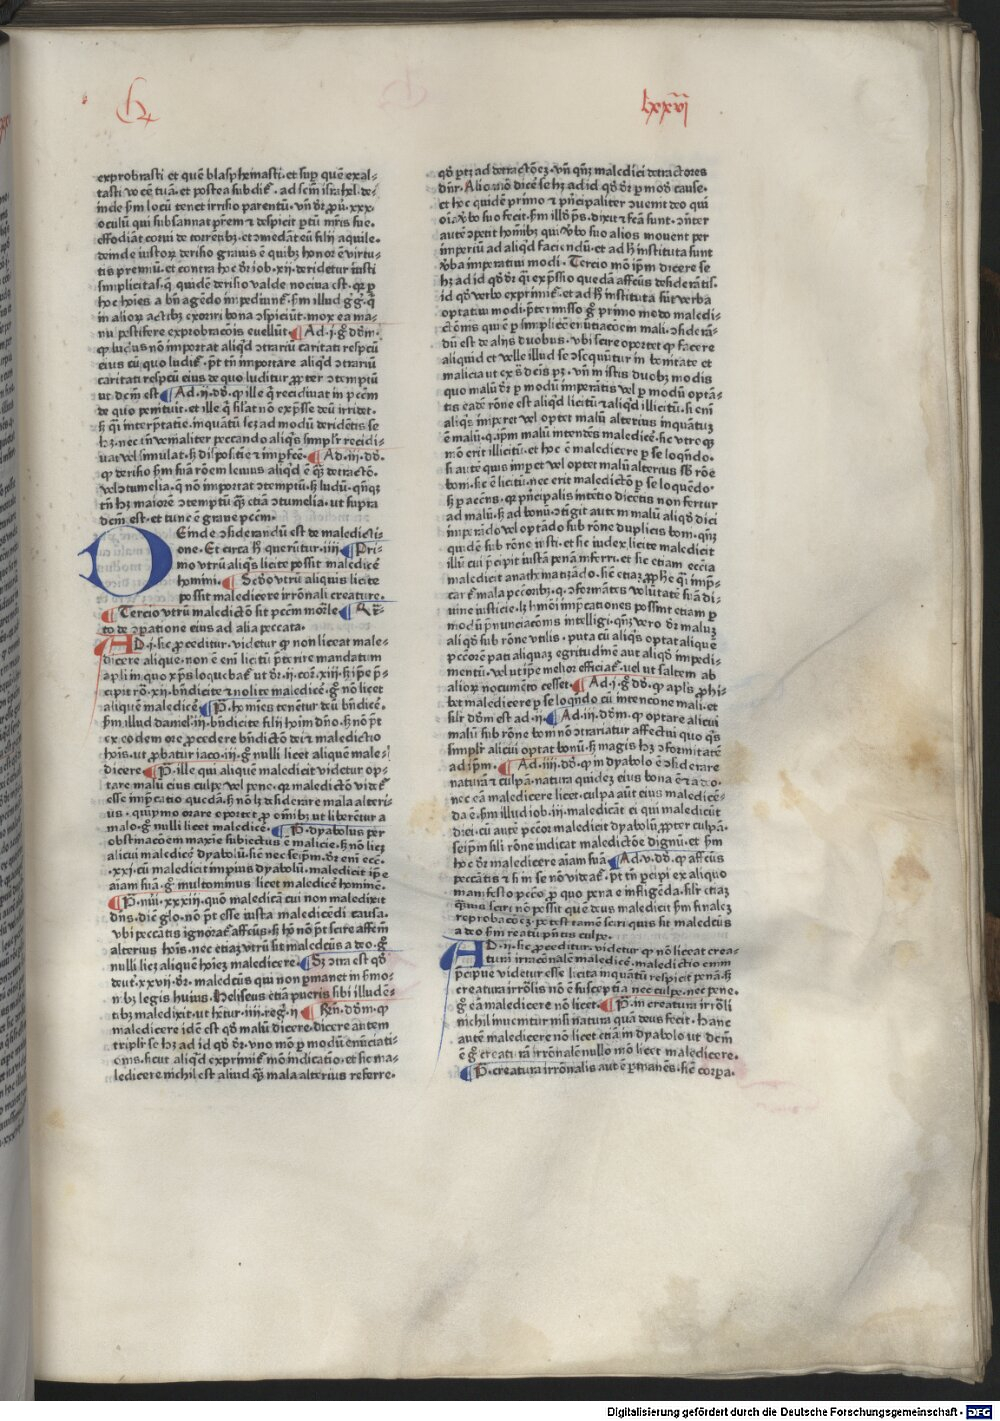 lxxvi
exprobrasti et quē blasphemasti. et sup quē exal-
tasti vocē tuā. et postea subdit̄. ad scm̄ israhel. de-
inde ẜm locū tenet irrisio parentū. vn̄ dr̄ ꝓu. xxx.
oculū qui subsannat pr̄em ⁊ despicit ptū mr̄is sue.
effodiāt corui de torrētibꝫ. et ɔmedāt eū filij aquile.
deinde iustoꝝ derisio grauis ē quibꝫ honor ē virtu-
tis premiū. et contra hoc dr̄ iob. xij. deridetur iusti
simplicitas. q̄ quidē derisio valde nociua est. qꝛ ꝑ
hoc hoīes a bn̄ agēdo impediunt̄. ẜm illud g̈g̈. q̄
in alioꝝ actibꝫ exoriri bona ɔspiciūt. mox ea ma-
nu pestifere exprobracōis euellūt. Ad. j. g̊ dd̄m.
ꝙ ludus nō importat aliqd̄ ɔtrariū caritati respcū
eius cū quo ludit̄. pt̄ tn̄ importare aliqd̄ ɔtrariū
caritati respcū eius de quo luditur ꝓpter ɔtemptū
ut dcm̄ est. Ad. ij. dd̄. ꝙ ille q̄ recidiuat in pccm̄
de quo penituit. et ille q̄ sīlat nō exp̄sse deū irridet.
ẜꝫ q̄i interp̄tatie. inquātū scꝫ ad modū deridētis se
hꝫ. nec tn̄ venialiter peccando aliqs̄ simplr̄ recidi-
uat vel simulat. ẜꝫ dispositie ⁊ impfcē. Ad. iij. dd̄.
ꝙ derisio ẜm suā rōem leuius aliqd̄ ē q̄ꝫ detractō.
vel ɔtumelia. q̄ nō importat ɔtemptū ẜꝫ ludū. qn̄qꝫ
tn̄ hꝫ maiorē ɔtemptū q̄ꝫ etiā ɔtumelia. ut supra
dcm̄ est. et tunc ē graue pccm̄.
DEinde ɔsiderandū est de maledicti-
one. Et circa h̄ querūtur. iiij. Pri-
mo vtrū aliqs̄ licite possit maledicē
homini. Scd̄o vtrū aliquis licite
possit maledicere irrōnali creature.
Tercio vtrū maledictō sit pccm̄ mor̄le. Qr̄-
to de ɔꝑatione eius ad alia peccata.
AD. j. sic ꝓceditur. videtur ꝙ non liceat male-
dicere alique. non ē eni licitū p̄terire mandatum
apli in quo xp̄s loquebat̄ ut dr̄. ij. cor. xiij. ẜꝫ ip̄e p̄-
cipit ro. xij. bn̄dicite ⁊ nolite maledicē. g̊ nō licet
aliquē maledicē. P̄. hoīes tenētur deū bn̄dicē.
ẜm illud daniel. iij. bn̄dicite filij hoīm dn̄o. ẜꝫ nō pt̄
ex eodem ore ꝓcedere bn̄dictō dei ⁊ maledictio
hoīs. ut ꝓbatur iaco. iij. g̊ nulli licet aliquē male-
dicere. P̄. ille qui aliquē maledicit videtur op-
tare malū eius culpe vel pene. qꝛ maledictō videt̄
esse imp̄catio quedā. ẜꝫ nō lꝫ desiderare mala alteri-
us. quīpmo orare oportet ꝓ oībꝫ ut liberētur a
malo. g̊ nulli licet maledicē. P̄. dyabolus per
obstinacōem maxīe subiectus ē malicie. ẜꝫ nō licꝫ
alicui maledicē dyabolū. sic nec seip̄m. dr̄ eni ecc̄.
xxj. cū maledicit impius dyabolū. maledicit ip̄e
aiam suā. g̊ multominus licet maledicē hominē.
P̄. nūi. xxxiij. quō maledicā cui non maledixit
dn̄s. Die glo. nō pt̄ esse iusta maledicēdi causa.
vbi peccātis ignorat̄ affcūs. ẜꝫ hō nō pt̄ scire affcm̄
alterius hoīs. nec etiaꝫ vtrū sit maledcūs a deo. g̊
nulli licꝫ aliquē hoīeꝫ maledicere. Sꝫ ɔtra est qd̄
deut̄. xxvij. dr̄. maledcūs qui non ꝑmanet in ẜmo-
nibꝫ legis huius. Heliseus etiā pueris sibi illudē-
tibꝫ maledixit. ut hr̄tur. iiij. reg̊. ij. Rn̄. dd̄m. ꝙ
maledicere idē est qd̄ malū dicere. dicere autem
triplr̄ se hꝫ ad id qd̄ dr̄. vno mō ꝑ modū enūciati-
onis. sicut aliqd̄ exprimit̄ mō indicatiō. et sic ma-
ledicere nichil est aliud q̄ꝫ mala alterius referre.
qd̄ ptꝫ ad detractōeꝫ. vn̄ qn̄qꝫ maledici detractores
dn̄r. Alio mō dicē se hꝫ ad id qd̄ dr̄ ꝑ modū cause.
et hoc quidē primo ⁊ pn̄cipaliter ɔuenit deo qui
oīa v̄bo suo fecit. ẜm illō ps̄. dixit ⁊ fcā sunt. ɔn̄ter
autē ɔpetit hoībꝫ qui v̄bo suo alios mouent per
imperiū ad aliqd̄ faciendū. et ad h̄ instituta sunt
v̄ba imperatiui modi. Tercio mō ip̄m dicere se
hꝫ ad id qd̄ dr̄ q̄i exp̄ssio quedā affcūs desiderātis.
id qd̄ verbo exprimit̄. et ad h̄ instituta sūt verba
optatiui modi. p̄termisso g̊ primo modo maledi-
ctōnis qui ē ꝑ simplicē enūtiacōem mali. ɔsiderā-
dū est de alijs duobus. vbi scire oportet ꝙ facere
aliquid et velle illud se ɔsequūtur in bonitate et
malicia ut ex s̄ dcīs pꝫ. vn̄ in istis duobꝫ modis
quo malū dr̄ ꝑ modū imperātis vel ꝑ modū optā-
tis eadē rōne est aliqd̄ licitū ⁊ aliqd̄ illicitū. si eni
aliqs̄ imperet vel optet malū alterius inquātuꝫ
ē malū. q̄ ip̄m malū intendēs maledicē. sic vtroqꝫ
mō erit illicitū. et hoc ē maledicere ꝑ se loqn̄do.
si autē quis impet vel optet malū alterius sb̄ rōe
boni. sic ē licitū. nec erit maledictō ꝑ se loquēdo.
ẜꝫ ꝑ accn̄s. qꝛ pn̄cipalis intētio dicētis non fertur
ad malū. ẜꝫ ad bonū. ɔtigit autem malū aliqd̄ dici
imperādo vel optādo sub rōne duplicis boni. qn̄qꝫ
quidē sub rōne iusti. et sic iudex licite maledicit
illū cui p̄cipit iustā penā inferri. et sic etiam eccīa
maledicit anathematizādo. sic etiaꝫ ꝓphe q̄i imp̄-
cāt̄ mala pccōribꝫ. q̄i ɔformātes volūtatē suā di-
uine iusticie. lꝫ hmōi imp̄cationes possint etiam ꝑ
modū p̄nunciacōnis intelligi. qn̄qꝫ vero dr̄ maluꝫ
aliqd̄ sub rōne vtilis. puta cū aliqs̄ optat aliquē
pccōrem pati aliquaꝫ egritudinē aut aliqd̄ impedi-
mentū. vel ut ip̄e melior efficiat̄. uel ut saltem ab
alioꝝ nocumēto cesset. Ad. j. g̊ dd̄. ꝙ apl̄s ꝓhi-
bet maledicere ꝑ se loqn̄do cū intencone mali. et
silr̄ dd̄m est ad. ij. Ad. iij. dd̄m. ꝙ optare alicui
malū sub rōne boni nō ɔtrariatur affectui quo qs̄
simplr̄ alicui optat bonū. ẜꝫ magis hꝫ ɔformitatē
ad ip̄m. Ad. iiij. dd̄. ꝙ in dyabolo ē ɔsiderare
naturā ⁊ culpā. natura quideꝫ eius bona ē ⁊ a deo.
nec eā maledicere licet. culpa aūt eius maledicē-
da ē. ẜm illud iob. iij. maledicāt ei qui maledicūt
diei. cū autē pccōr maledicit dyabolū ꝓpter culpā.
seip̄m sīli rōne iudicat maledictōe dignū. et ẜm
hoc dr̄ maledicere aiam suā. Ad. v. dd̄. ꝙ affcūs
peccātis ⁊ si in se nō videat̄. pt̄ tn̄ p̄cipi ex aliquo
manifesto pccō. ꝓ quo pena ē infligēda. silr̄ etiaꝫ
q̄uis sciri nō possit quē deus maledicit ẜm finaleꝫ
reprobacōeꝫ. potest tamē sciri quis sit maledcūs
a deo ẜm reatū pn̄tis culpe.
AD. ij. sic ꝓceditur. videtur ꝙ nō liceat crea-
turā irracōnalē maledicē. maledictio enim
p̄cipue videtur esse licita inquātū respicit penā. ẜꝫ
creatura irrōlis nō ē susceptīa nec culpe. nec pene.
g̊ eā maledicere nō licet. P̄. in creatura irrōli
nichil inuenitur nisi natura quā deus fecit. hanc
autē maledicere nō licet etiā in dyabolo ut dcm̄
ē. g̊ creaturā irrōnalē nullo mō licet maledicere.
P̄. creatura irrōnalis aut ē ꝑmanēs. sic corpa.
Digitalisierung gefördert durch die Deutsche Forschungsgemeinschaft - DFG